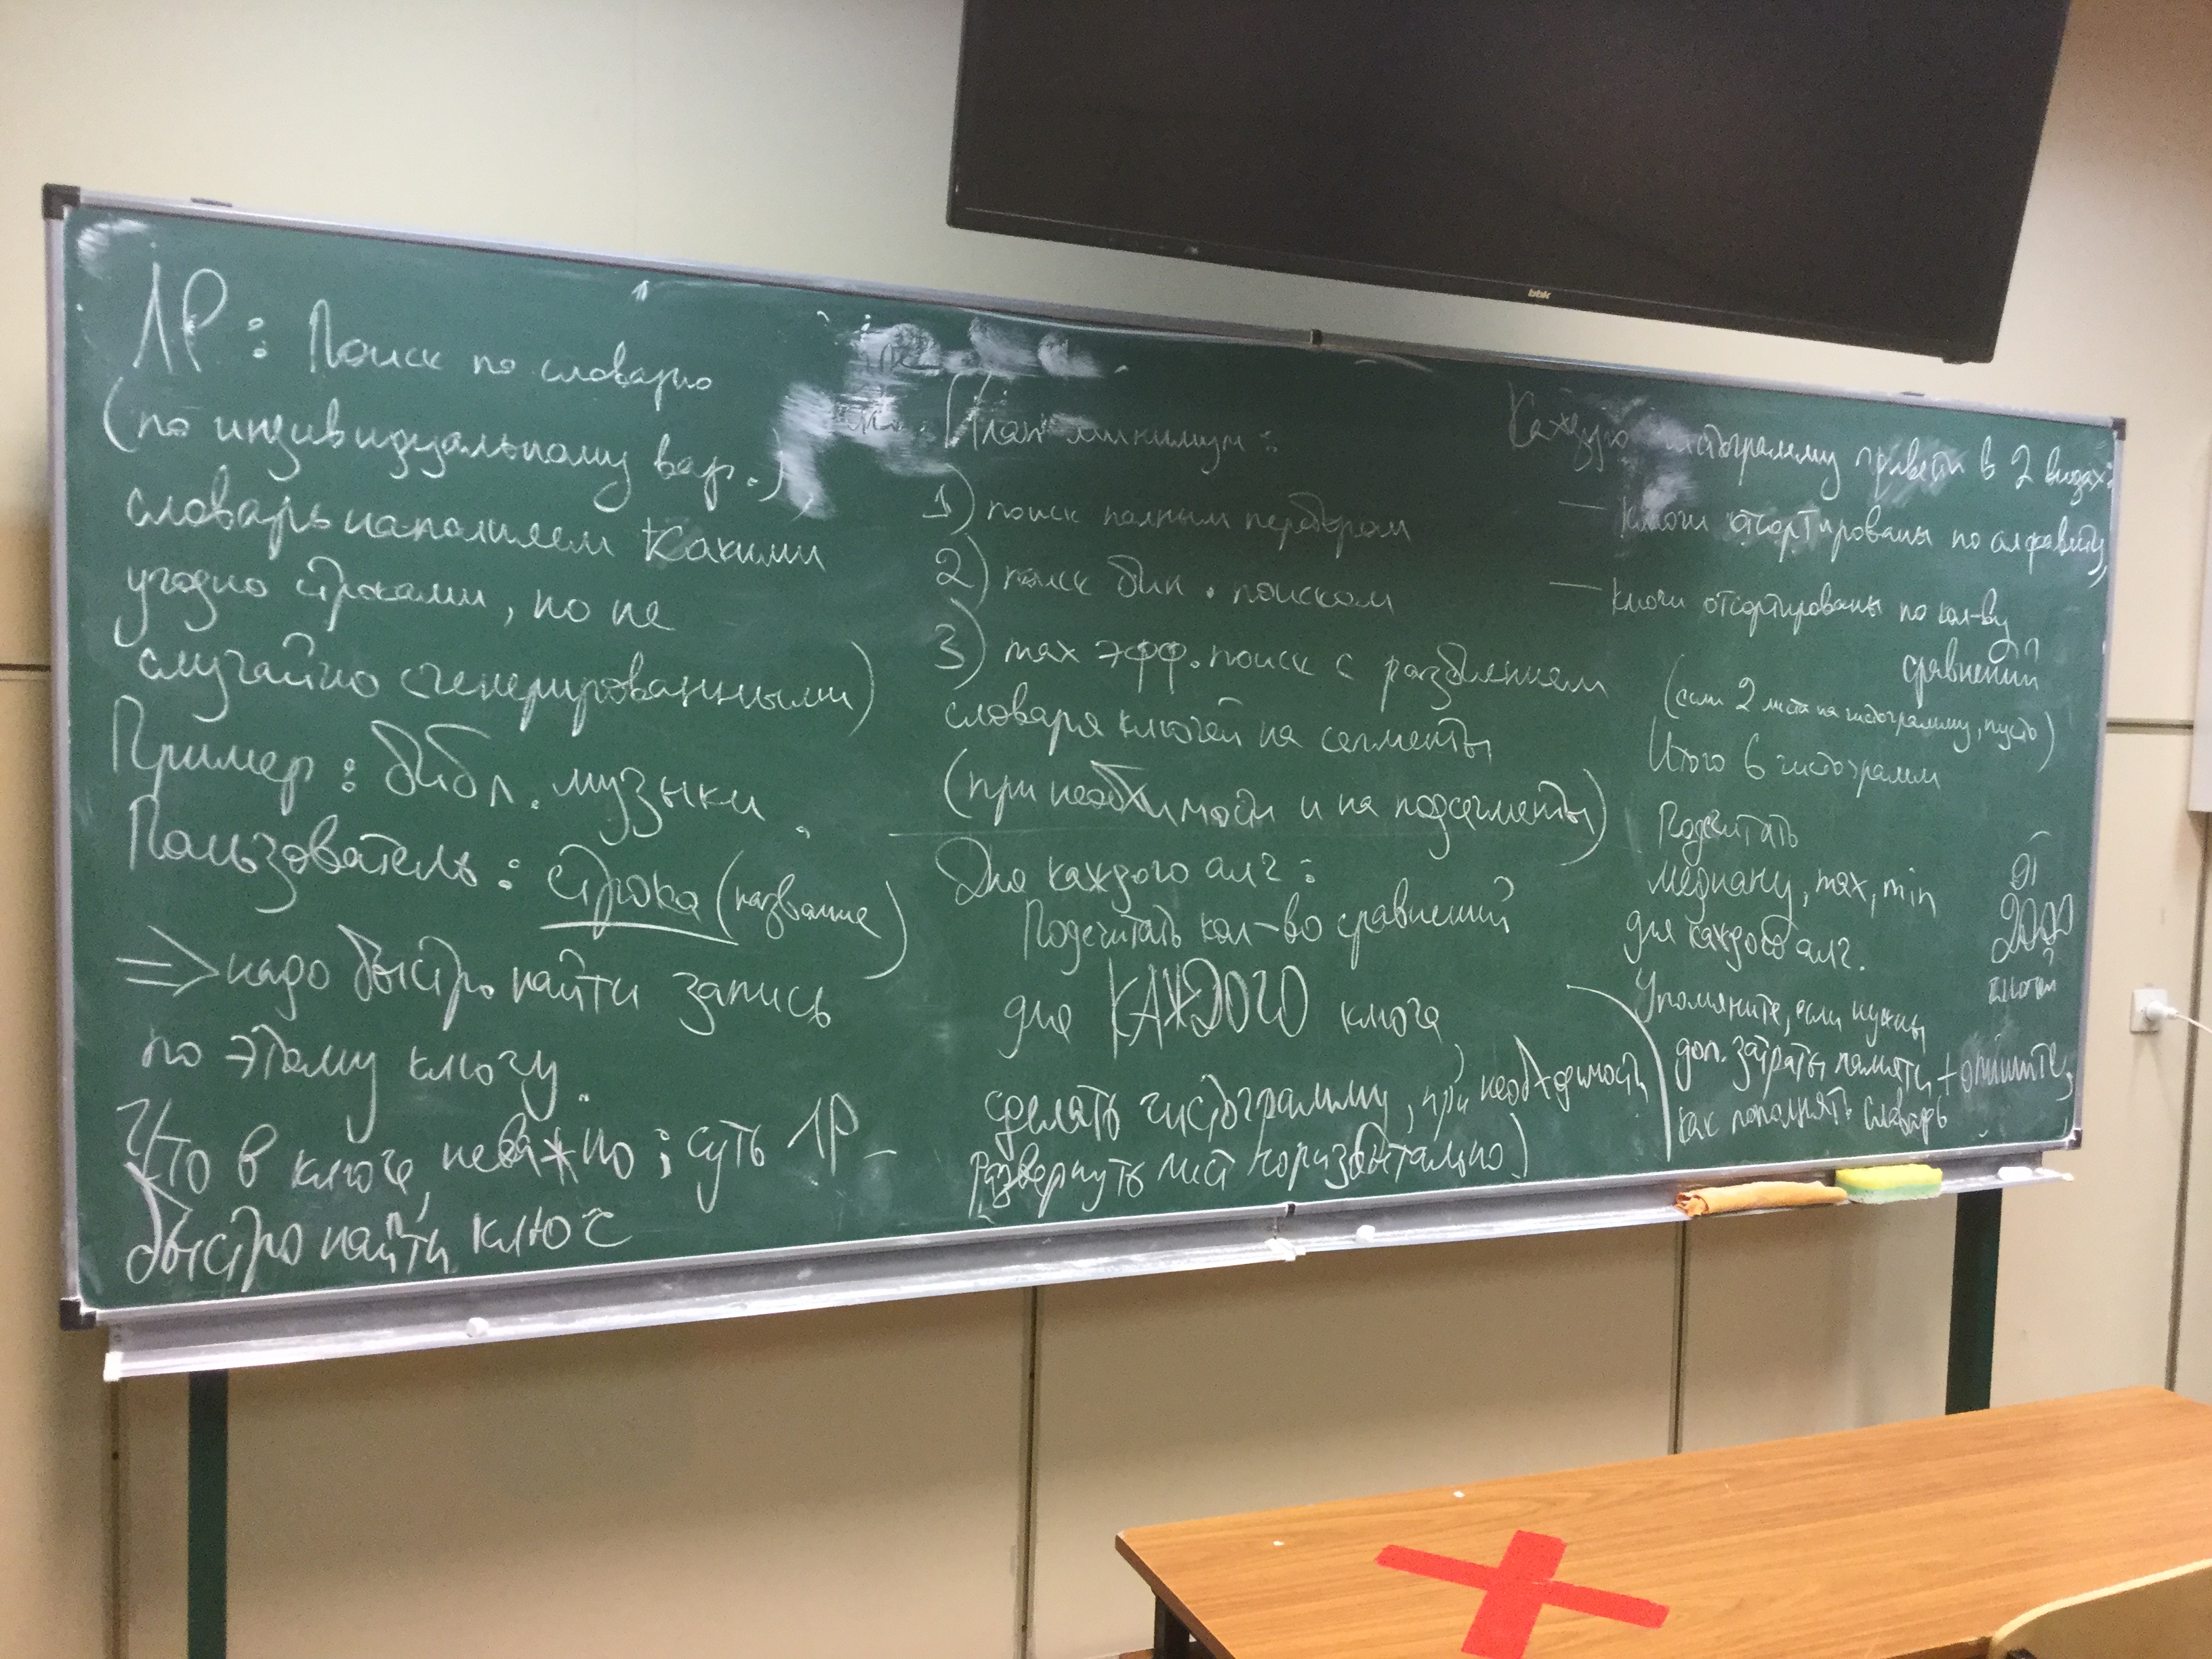 ЛР: Поиск по словарю
(по индивидуальному вар.,
словарь наполняем какими
угодно строками, но не
случайно сгенерированными)
Пример: библ. музыки
Пользователь: строка (название)
=> надо быстро найти запись
по этому ключу.
Что в ключе, неважно; суть ЛР –
быстро найти ключ
План минимум:
1) поиск полным перебором
2) поиск бин. поиском
3) max эфф. поиск с разбиением
словаря ключей на сегменты
(при необходимости и на подсегменты)
Для каждого алг:
Подсчитать кол-во сравнений
для КАЖДОГО ключа,
сделать гистограмму, при необходимости
развернуть лист горизонтально)
Каждую гистограмму привести в 2 видах:
— ключи отсортированы по алфавиту,
— ключи отсортированы по кол-ву
сравнений
(если 2 листа на гистограмму, пусть)
Итого 6 гистограмм
Подсчитать
медиану, max, min
для каждого алг.
от
2000
ключей
Упомяните, если нужны
доп. затраты памяти + опишите,
как пополнять словарь
bbk